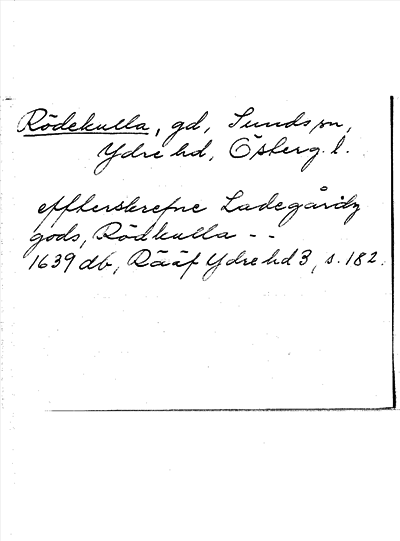 Rödekulla, gd, Sunds sn,
Ydre hd, Österg. l.
effterskrefne Ladegårdz
gods, Rödkulla - -
1639 db, Rääf Ydre hd 3, s. 182.